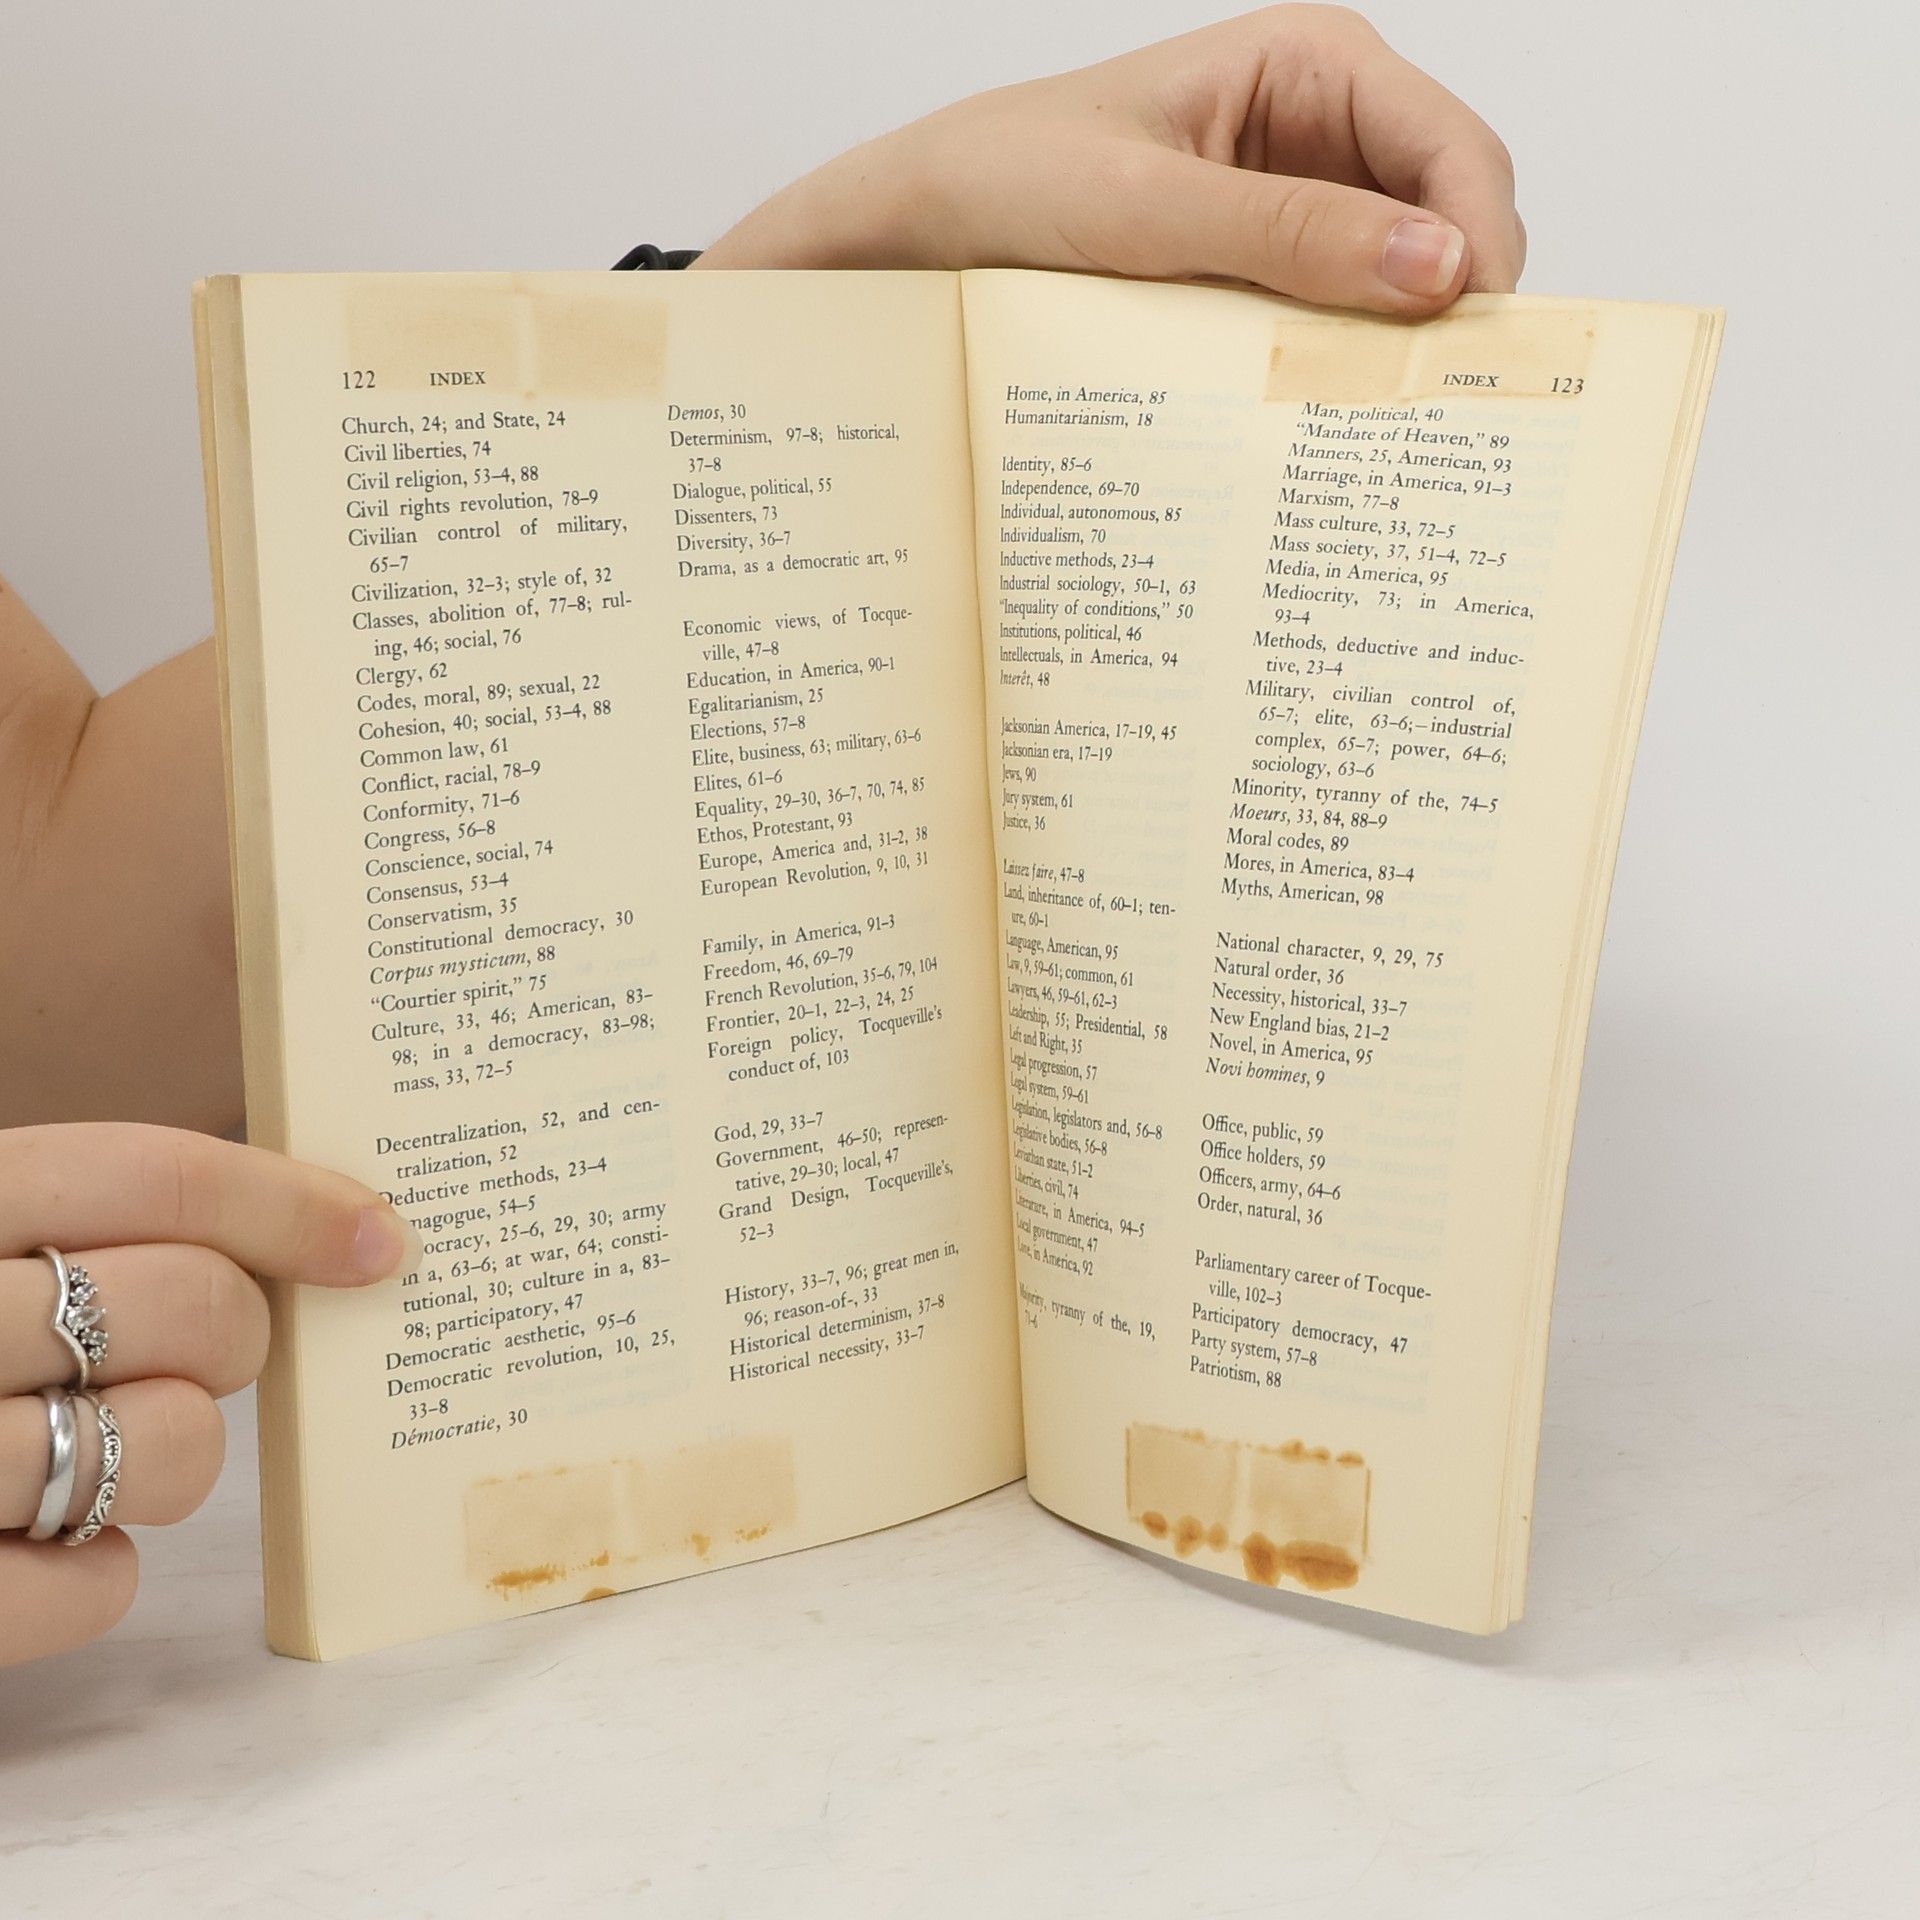 122 INDEX
Church, 24; and State, 24
Civil liberties, 74
Civil religion, 53–4, 88
Civil rights revolution, 78–9
Civilian control of military,
65–7
Civilization, 32–3; style of, 32
Classes, abolition of, 77–8; rul-
ing, 46; social, 76
Clergy, 62
Codes, moral, 89; sexual, 22
Cohesion, 40; social, 53–4, 88
Common law, 61
Conflict, racial, 78–9
Conformity, 71–6
Congress, 56–8
Conscience, social, 74
Consensus, 53–4
Conservatism, 35
Constitutional democracy, 30
Corpus mysticum, 88
“Courtier spirit,” 75
Culture, 33, 46; American, 83–
98; in a democracy, 83–98;
mass, 33, 72–5
Decentralization, 52, and cen-
tralization, 52
Deductive methods, 23–4
magogue, 54–5
ocracy, 25–6, 29, 30; army
in a, 63–6; at war, 64; consti-
tutional, 30; culture in a, 83–
98; participatory, 47
Democratic aesthetic, 95–6
Democratic revolution, 10, 25,
33–8
Démocratie, 30
Demos, 30
Determinism, 97–8; historical,
37–8
Dialogue, political, 55
Dissenters, 73
Diversity, 36–7
Drama, as a democratic art, 95
Economic views, of Tocque-
ville, 47–8
Education, in America, 90–1
Egalitarianism, 25
Elections, 57–8
Elite, business, 63; military, 63–6
Elites, 61–6
Equality, 29–30, 36–7, 70, 74, 85
Ethos, Protestant, 93
Europe, America and, 31–2, 38
European Revolution, 9, 10, 31
Family, in America, 91–3
Freedom, 46, 69–79
French Revolution, 35–6, 79, 104
Frontier, 20–1, 22–3, 24, 25
Foreign policy, Tocqueville’s
conduct of, 103
God, 29, 33–7
Government, 46–50; represen-
tative, 29–30; local, 47
Grand Design, Tocqueville’s,
52–3
History, 33–7, 96; great men in,
96; reason-of-, 33
Historical determinism, 37–8
Historical necessity, 33–7
INDEX 123
Home, in America, 85
Humanitarianism, 18
Identity, 85–6
Independence, 69–70
Individual, autonomous, 85
Individualism, 70
Inductive methods, 23–4
Industrial sociology, 50–1, 63
“Inequality of conditions,” 50
Institutions, political, 46
Intellectuals, in America, 94
Interêt, 48
Jacksonian America, 17–19, 45
Jacksonian era, 17–19
Jews, 90
Jury system, 61
Justice, 36
Laissez faire, 47–8
Land, inheritance of, 60–1; ten-
ure, 60–1
Language, American, 95
Law, 9, 59–61; common, 61
Lawyers, 46, 59–61, 62–3
Leadership, 55; Presidential, 58
Left and Right, 35
Legal progression, 57
Legal system, 59–61
Legislation, legislators and, 56–8
Legislative bodies, 56–8
Leviathan state, 51–2
Liberties, civil, 74
Literature, in America, 94–5
Local government, 47
Love, in America, 92
Majority, tyranny of the, 19,
71–6
Man, political, 40
“Mandate of Heaven,” 89
Manners, 25, American, 93
Marriage, in America, 91–3
Marxism, 77–8
Mass culture, 33, 72–5
Mass society, 37, 51–4, 72–5
Media, in America, 95
Mediocrity, 73; in America,
93–4
Methods, deductive and induc-
tive, 23–4
Military, civilian control of,
65–7; elite, 63–6;—industrial
complex, 65–7; power, 64–6;
sociology, 63–6
Minority, tyranny of the, 74–5
Moeurs, 33, 84, 88–9
Moral codes, 89
Mores, in America, 83–4
Myths, American, 98
National character, 9, 29, 75
Natural order, 36
Necessity, historical, 33–7
New England bias, 21–2
Novel, in America, 95
Novi homines, 9
Office, public, 59
Office holders, 59
Officers, army, 64–6
Order, natural, 36
Parliamentary career of Tocque-
ville, 102–3
Participatory democracy, 47
Party system, 57–8
Patriotism, 88